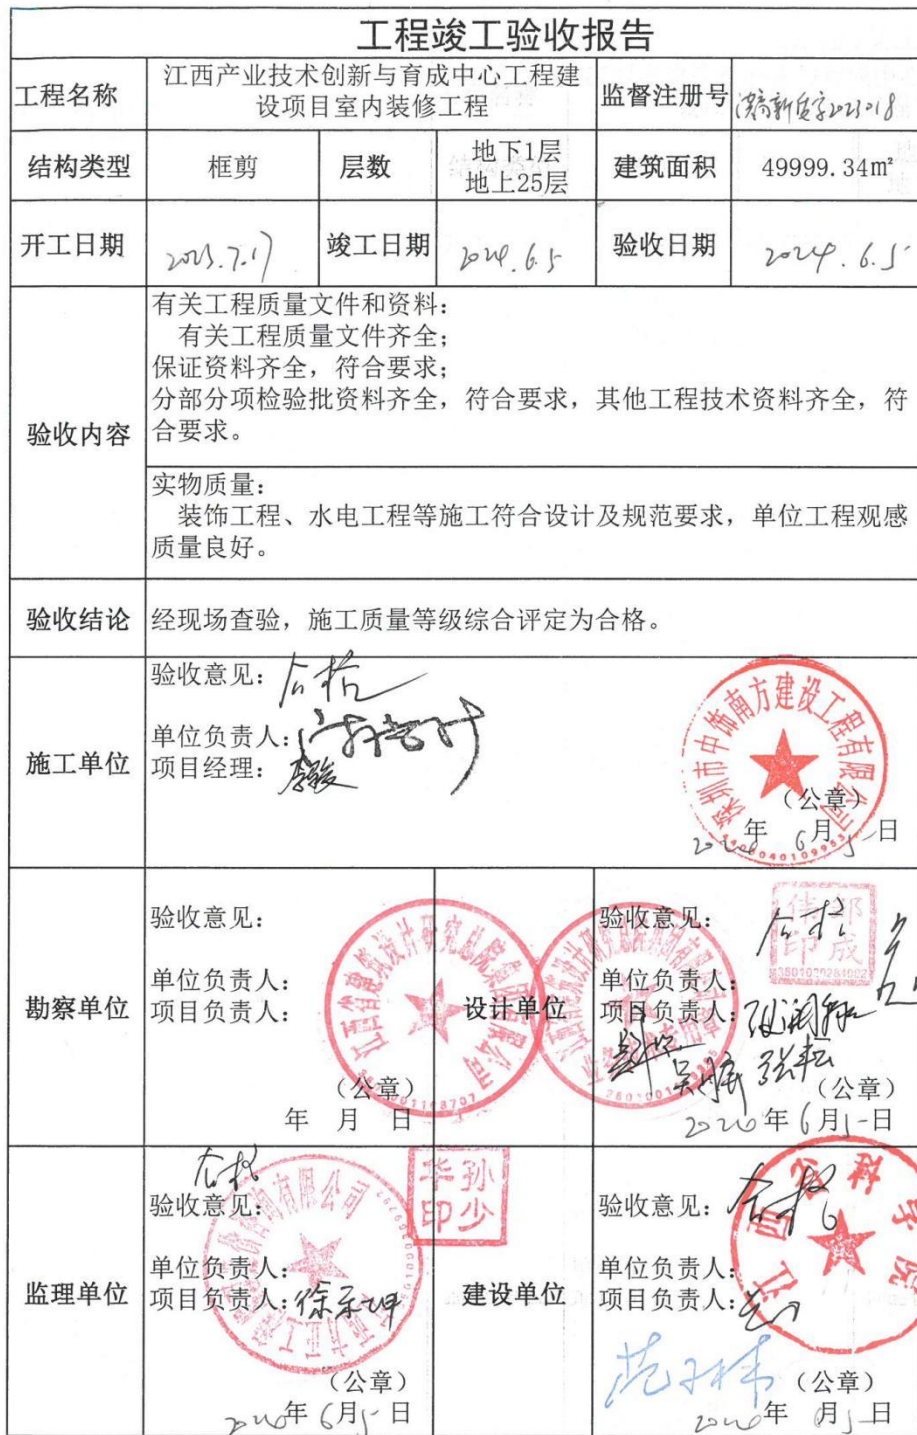 工程竣工验收报告
工程名称
江西产业技术创新与育成中心工程建
设项目室内装修工程
监督注册号
结构类型
框剪
层数
地下1层
地上25层
建筑面积
49999.34m²
开工日期
2023.7.17
竣工日期
2024.6.5
验收日期
2024.6.5
验收内容
有关工程质量文件和资料：
有关工程质量文件齐全；
保证资料齐全，符合要求；
分部分项检验批资料齐全，符合要求，其他工程技术资料齐全，符
合要求。
实物质量：
装饰工程、水电工程等施工符合设计及规范要求，单位工程观感
质量良好。
验收结论
经现场查验，施工质量等级综合评定为合格。
施工单位
验收意见：合格
单位负责人：
项目经理：李骏
深圳市中饰南方建设工程有限公司
（公章）
年 6月5日
勘察单位
验收意见：
单位负责人：
项目负责人：
江西省建筑设计研究总院集团有限公司
（公章）
年 月 日
设计单位
验收意见：合格
单位负责人：
项目负责人：
（公章）
年6月5日
监理单位
合格
验收意见：
单位负责人：
项目负责人：
孙少华印
（公章）
年6月5日
建设单位
验收意见：合格
单位负责人：
项目负责人：
江西省科学院
（公章）
年 月5日